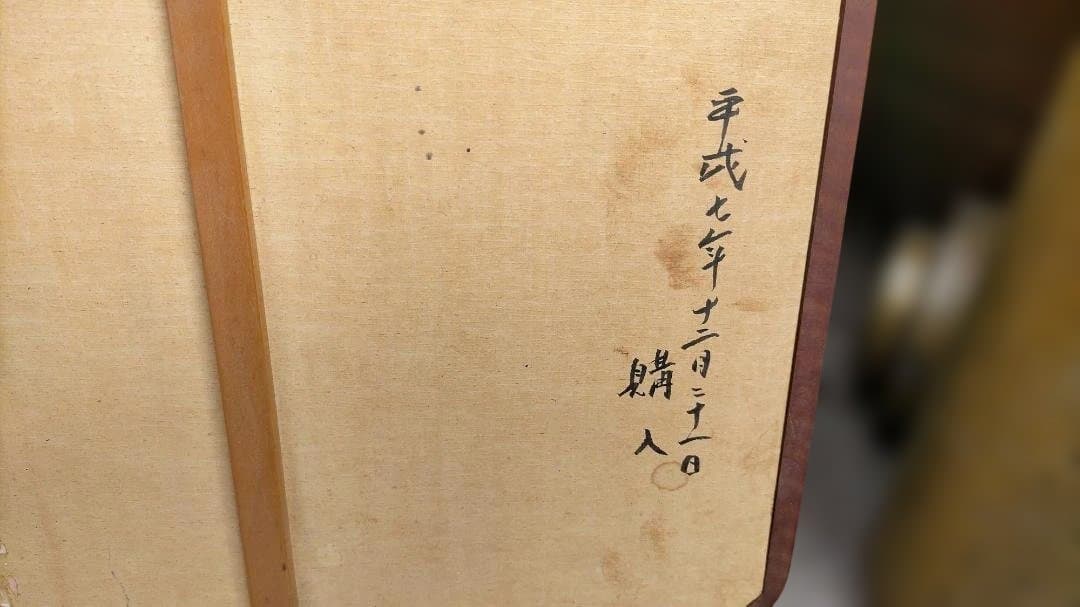 平成七年十二月二十一日
購入